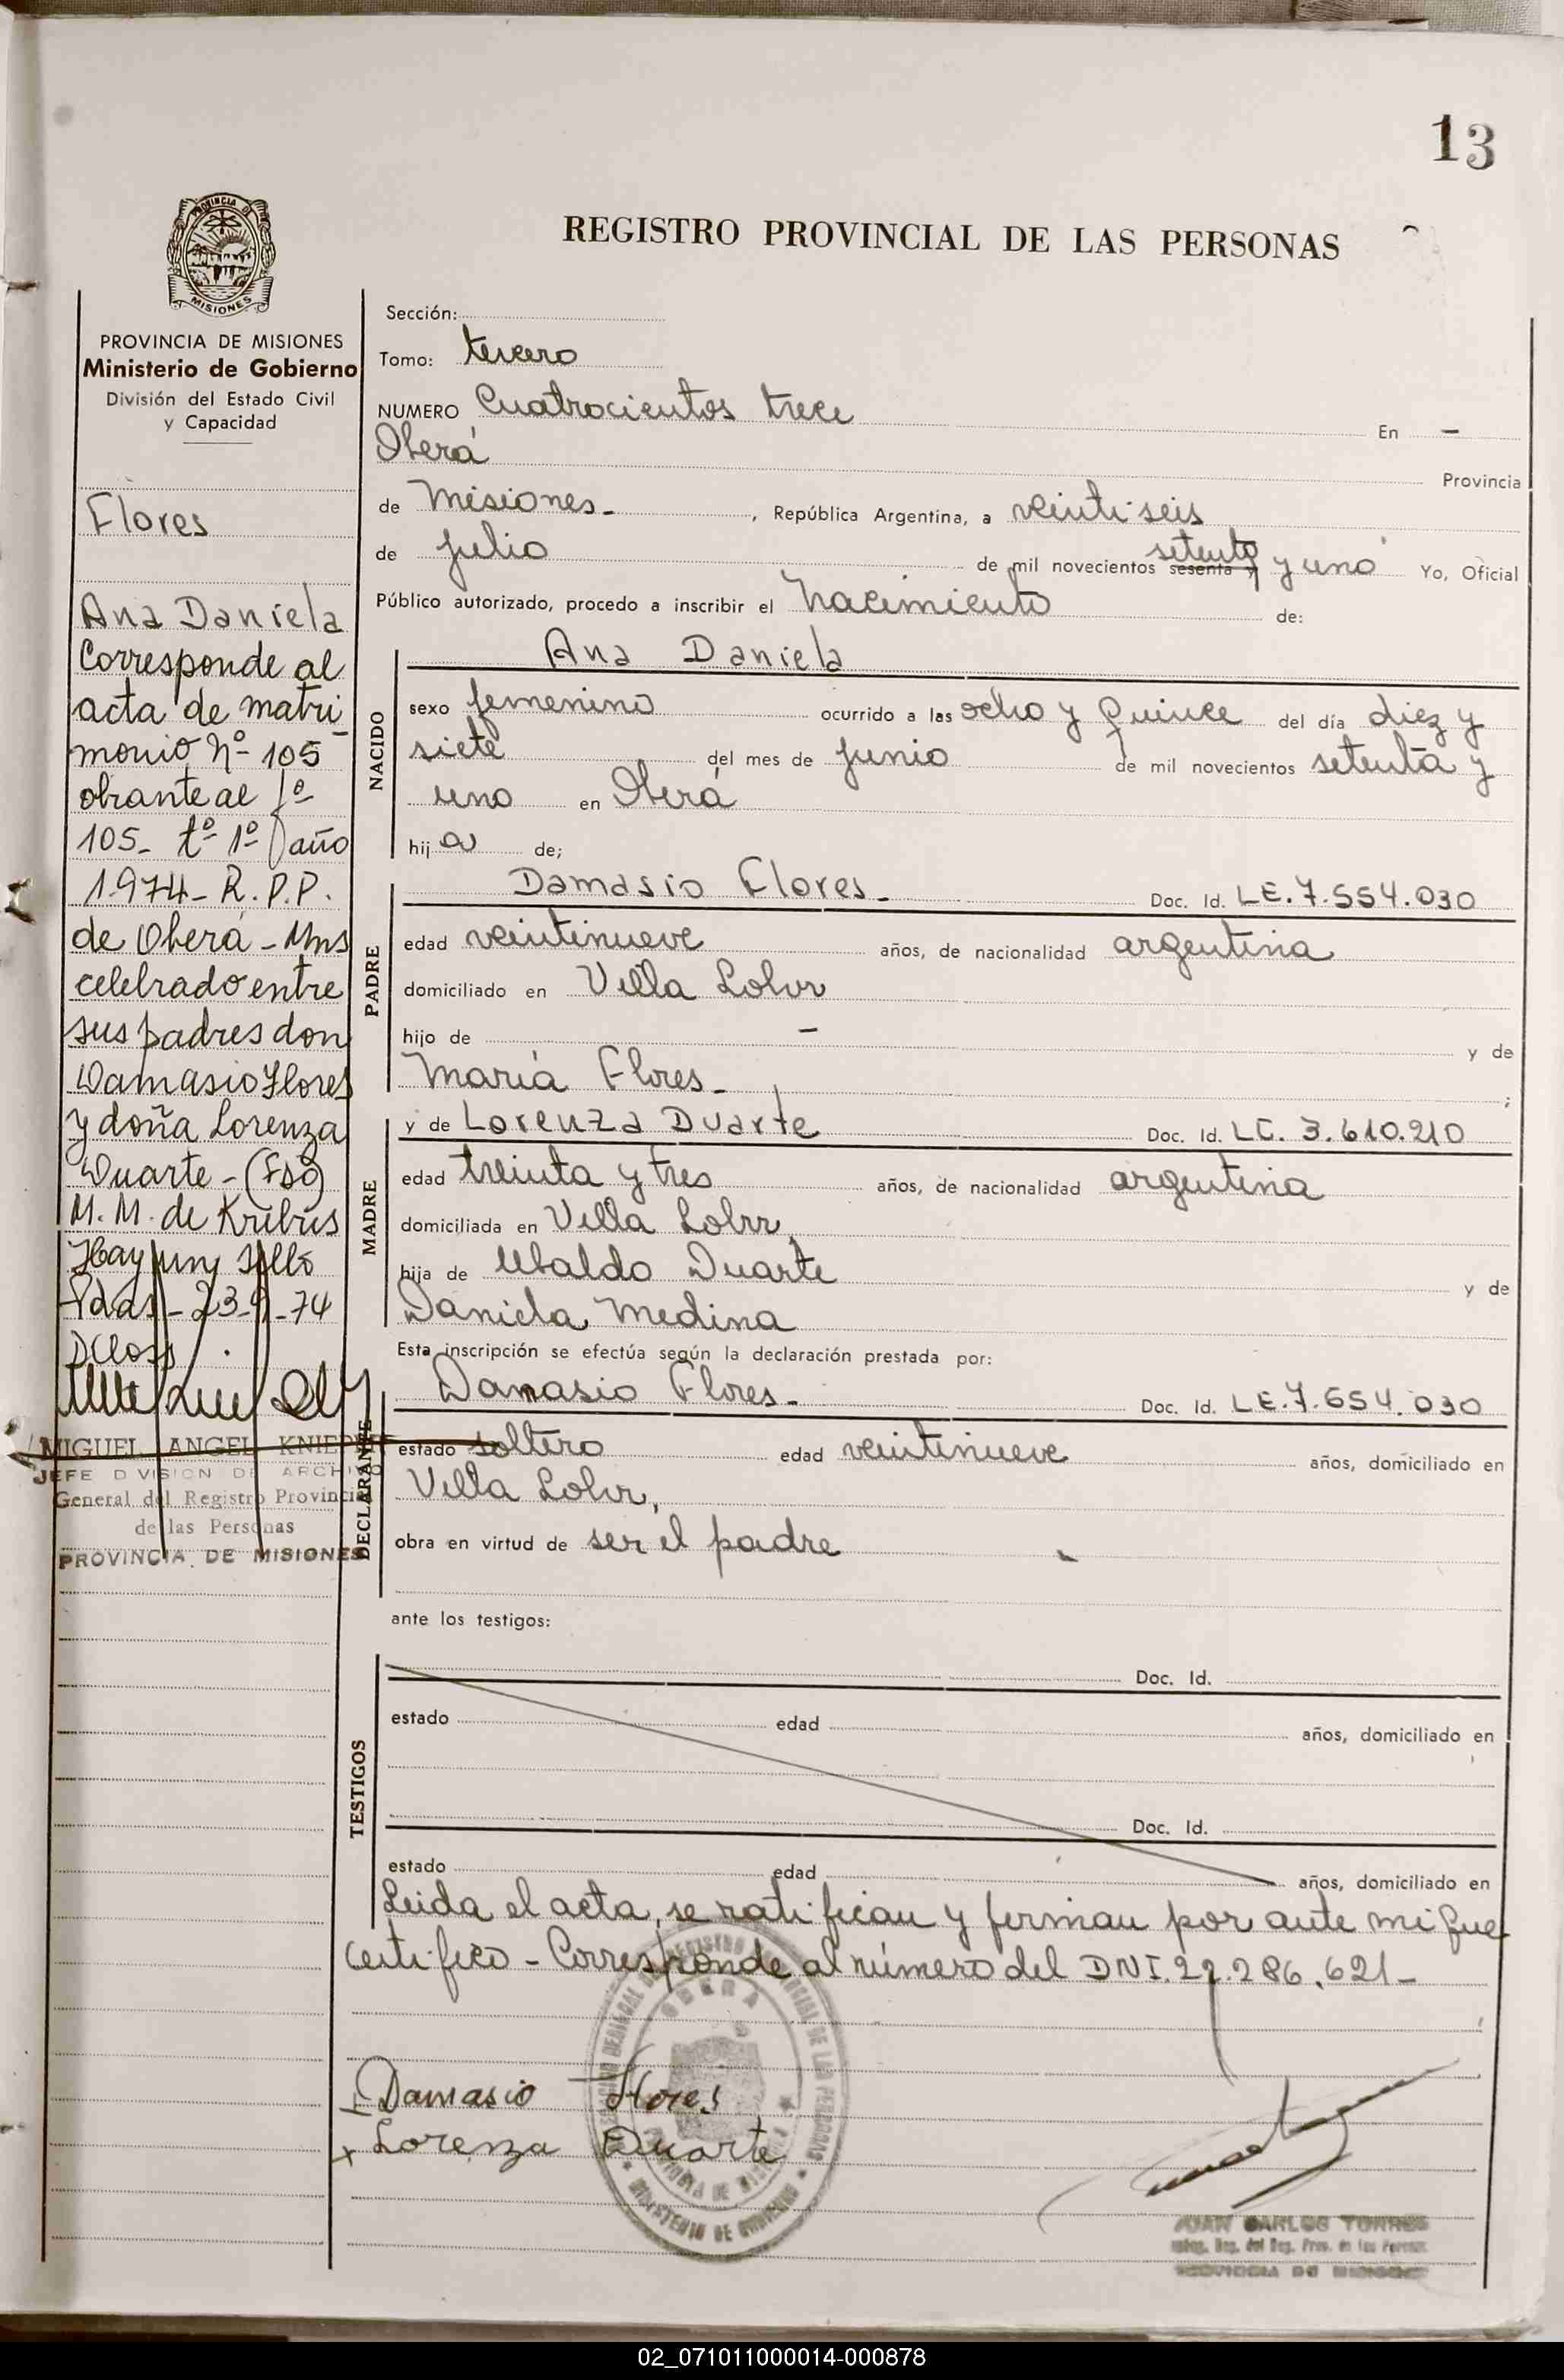 13
PROVINCIA DE
MISIONES
REGISTRO PROVINCIAL DE LAS PERSONAS
PROVINCIA DE MISIONES
Ministerio de Gobierno
División del Estado Civil
y Capacidad
Flores
Ana Daniela
Corresponde al
acta de matri
monio Nº 105
obrante al fº
105- tº 1º año
1.974- R.P.P.
de Oberá - Mns
celebrado entre
sus padres don
Damasio Flores
y doña Lorenza
Duarte - (Fdo)
M. M. de Kribus
Hay un sello
Pdas - 23-9-74
MIGUEL ANGEL
JEFE DIVISION DE ARCHIVO
General del Registro Provincial
de las Personas
PROVINCIA DE MISIONES
Sección:
Tomo: tercero
NUMERO Cuatrocientos trece En -
Oberá Provincia
de Misiones- , República Argentina, a veinti seis
de julio de mil novecientos sesenta y setenta y uno Yo, Oficial
Público autorizado, procedo a inscribir el nacimiento de:
NACIDO
Ana Daniela
sexo femenino ocurrido a las ocho y quince del día diez y
siete del mes de junio de mil novecientos setenta y
uno en Oberá
hija de;
PADRE
Damasio Flores- Doc. Id. LE. 7.554.030
edad veintinueve años, de nacionalidad argentina
domiciliado en Villa Lohr
hijo de - y de
María Flores- ;
MADRE
y de Lorenza Duarte Doc. Id. LC. 3.610.210
edad treinta y tres años, de nacionalidad argentina
domiciliada en Villa Lohr,
hija de Ubaldo Duarte y de
Daniela Medina
Esta inscripción se efectúa según la declaración prestada por:
DECLARANTE
Damasio Flores- Doc. Id. LE. 7.554.030
estado soltero edad veintinueve años, domiciliado en
Villa Lohr,
obra en virtud de ser el padre
ante los testigos:
TESTIGOS
Doc. Id.
estado edad años, domiciliado en
Doc. Id.
estado edad años, domiciliado en
Leida el acta, se ratifican y firman por ante mi que
certifico - Corresponde al número del DNI. 22.286.621-
Damasio Flores
x Lorenza Duarte
OBERA
MINISTERIO DE GOBIERNO
JUAN CARLOS TORRES
PROVINCIA DE MISIONES
02_071011000014-000878